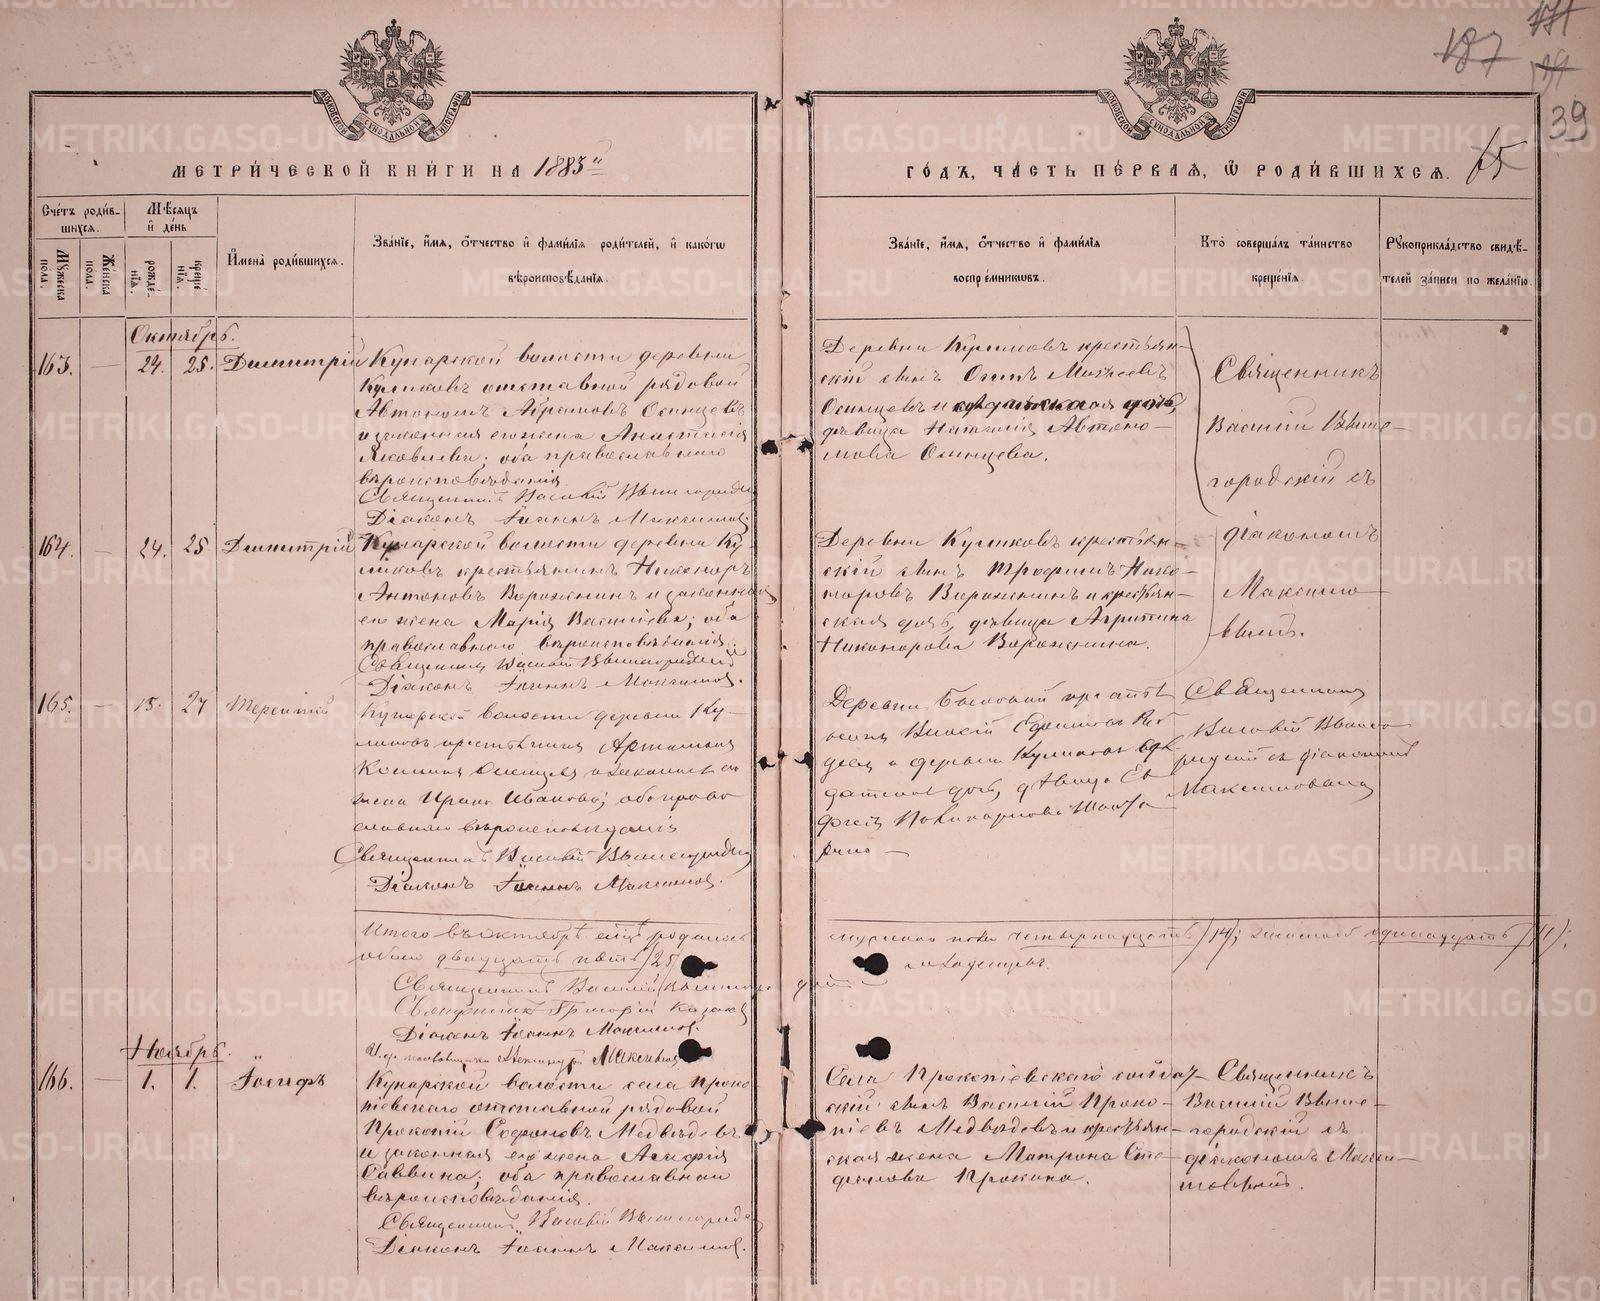 187
171
39
65
МЕТРИ́ЧЕСКОЙ КНИ́ГИ НА 1883й
ГО́ДЪ, ЧА́СТЬ ПЕ́РВАЯ, Ѡ РОДИ́ВШИХСЯ.
Сче́тъ роди́вшихся.
Му́жеска пола.
Же́нска пола.
Мѣ́сяцъ и де́нь
рожде́нія.
креще́нія.
И́мена̀ роди́вшихся.
Зва́ніе, и́мя, о́тчество и фами́лія роди́телей, и како́гѡ
вѣроисповѣ́данія.
Зва́ніе, и́мя, о́тчество и фами́лія
воспрее́мниковъ.
Кто̀ соверша́лъ та́инство
креще́нія.
Рꙋкоприкла́дство свидѣ́-
телей за́писи по жела́нію.
Октябрь.
163. — 24. 25. Димитрій
Кунарской волости деревни
Куликовъ отставной рядовой
Автономъ Абрамовъ Осинцевъ
и законная его жена Анастасія
Яковлева; оба православнаго
вѣроисповѣданія.
Священникъ Василій Вышегородскій
Діаконъ Іоаннъ Максимовъ.
Деревни Куликовъ крестьян-
скій сынъ Осипъ Моисеевъ
Осинцевъ и солдатская дочь,
дѣвица Наталія Автоно-
мова Осинцева.
Священникъ
Василій Выше-
городскій съ
діакономъ
Максимо-
вымъ.
164. — 24. 25 Димитрій
Кунарской волости деревни Ку-
ликовъ крестьянинъ Никаноръ
Антоновъ Ворожнинъ и законная
его жена Марія Васильева; оба
православнаго вѣроисповѣданія.
Священникъ Василій Вышегородскій
Діаконъ Іоаннъ Максимовъ.
Деревни Куликовъ крестьян-
скій сынъ Трофимъ Ника-
норовъ Ворожнинъ и крестьян-
ская дочь, дѣвица Агрипина
Никанорова Ворожнина.
165. — 15. 27 Терентій
Кунарской волости деревни Ку-
ликовъ крестьянинъ
Косминъ Осинцевъ и законная его
жена Ирина Иванова; оба право-
славнаго вѣроисповѣданія
Священникъ Василій Вышегородскій
Діаконъ Іоаннъ Максимовъ.
Деревни Быковой крестья-
нинъ
и деревни Куликовъ сол-
датская дочь, дѣвица Ев-
Священникъ
Василій Вышего-
родскій съ діакономъ
Максимовымъ
Итого въ октябрѣ всѣхъ родилось
обоего двадцать пять /25/
мужескаго пола четырнадцать /14/; женскаго одинадцать /11/;
младенцевъ.
Священникъ Василій Вышегородскій
Священникъ Григорій Казаковъ
Діаконъ Іоаннъ Максимовъ.
И. д. псаломщика Александръ Максимовъ
Ноябрь.
166. — 1. 1. Іосифъ
Кунарской волости села Проко-
піевскаго отставной рядовой
Прокопій Софоновъ Медвѣдевъ
и законная его жена Агафія
Саввина; оба православнаго
вѣроисповѣданія.
Священникъ Василій Вышегородскій
Діаконъ Іоаннъ Максимовъ.
Села Прокопіевскаго солдат-
скій сынъ Василій Проко-
піевъ Медвѣдевъ и крестьян-
ская жена Матрона Сте-
фанова Прокина.
Священникъ
Василій Выше-
городскій съ
діакономъ Макси-
мовымъ.